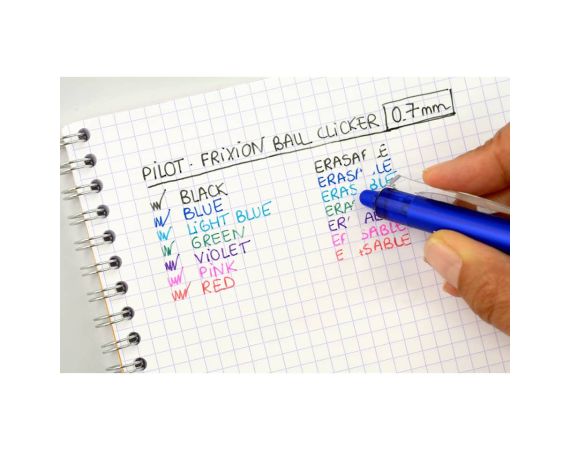 PILOT. FRIXION BALL CLICKER 0.7mm
BLACK
BLUE
LIGHT BLUE
GREEN
VIOLET
PINK
RED
ERASA E
ERAS LE
ERAS BLE
ERA
ER A
ER SABLE
E SABLE